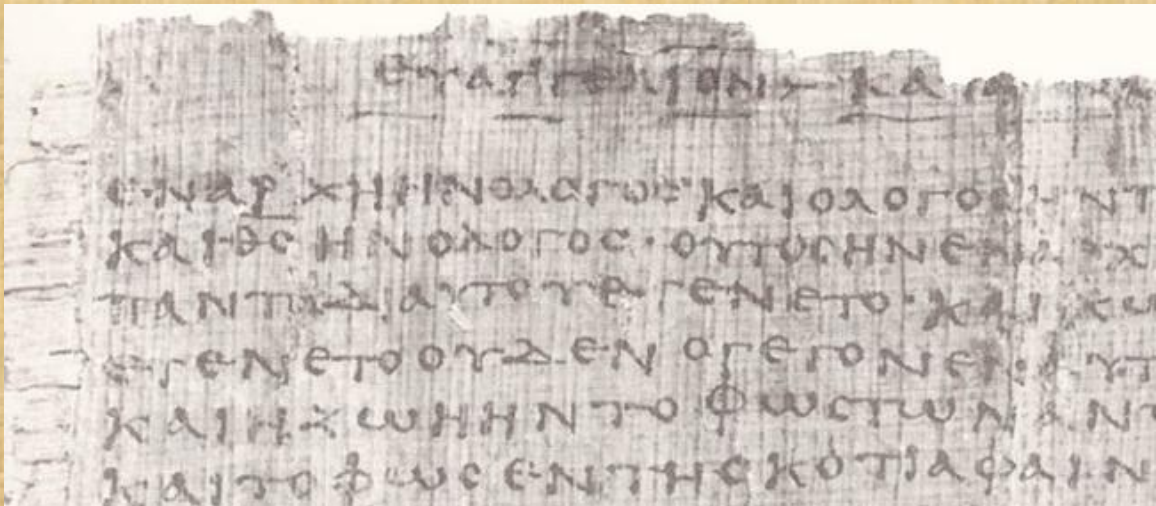 ΕΥΑΓΓΕΛΙΟΝ ΚΑ
ΕΝΑΡΧΗΗΝΟΛΟΓΟΣ ΚΑΙΟΛΟΓΟϹΗΝΤ
ΚΑΙΘϹΗΝΟΛΟΓΟϹ· ΟΥΤΟϹΗΝΕΝΑΡΧ
ΠΑΝΤΑΔΙΑΥΤΟΥΕΓΕΝΕΤΟ·ΚΑΙΧΩ
ΕΓΕΝΕΤΟΟΥΔΕΝ ΟΓΕΓΟΝΕΝΑΥΤ
ΚΑΙΗΖΩΗΗΝΤΟΦΩϹΤΩΝΑΝΤ
ΚΑΙΤΟΦΩϹΕΝΤΗϹΚΟΤΙΑΦΑΙΝ